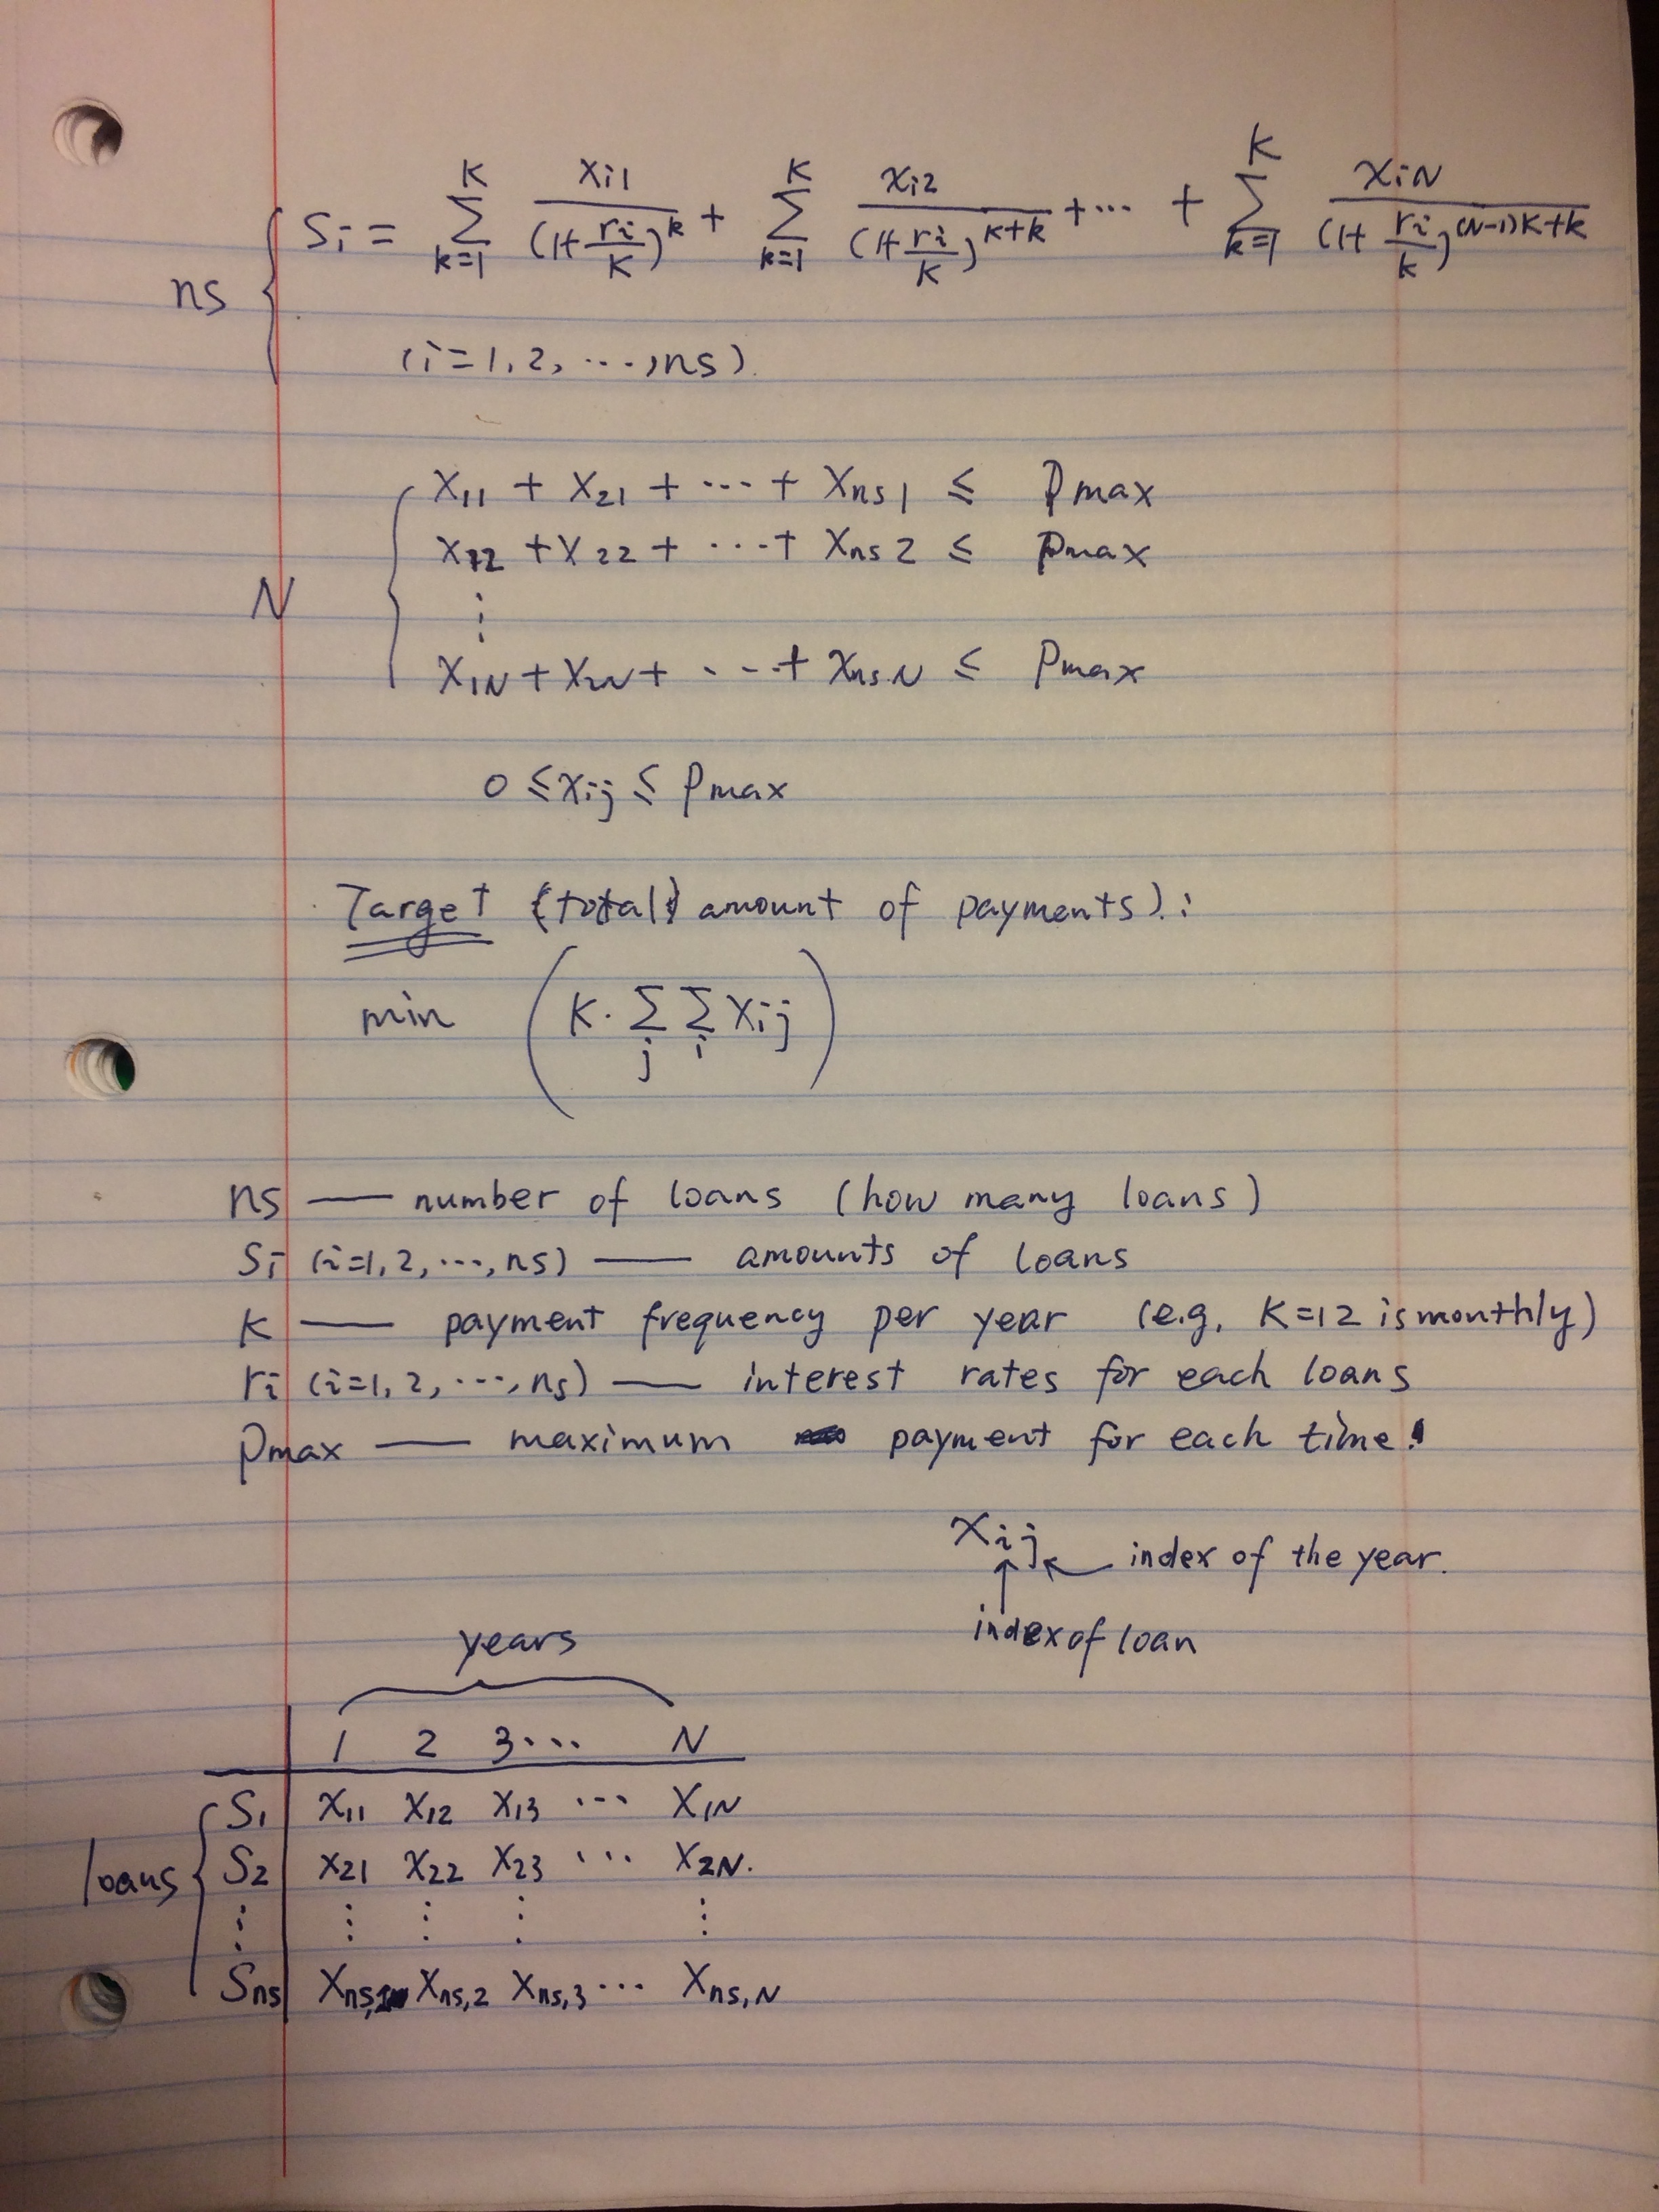 ns { Si = Σ_{k=1}^{K} xi1/(1+ri/K)^k + Σ_{k=1}^{K} xi2/(1+ri/K)^{K+k} + ··· + Σ_{k=1}^{K} xiN/(1+ri/k)^{(N-1)K+k}
(i=1,2,···,ns).
x11 + x21 + ··· + xns1 ≤ Pmax
x12 + x22 + ··· + xns2 ≤ Pmax
N { ⋮
x1N + x2N + ··· + xnsN ≤ Pmax
0 ≤ xij ≤ Pmax
Target (total amount of payments):
min ( K · Σ_j Σ_i xij )
ns — number of loans (how many loans)
Si (i=1,2,···,ns) — amounts of loans
K — payment frequency per year (e.g. K=12 is monthly)
ri (i=1,2,···,ns) — interest rates for each loans
Pmax — maximum payment for each time!
xij ← index of the year.
↑ index of loan
years
1 2 3 ··· N
S1 x11 x12 x13 ··· x1N
loans { S2 x21 x22 x23 ··· x2N.
⋮ ⋮ ⋮ ⋮ ⋮
Sns xns,1 xns,2 xns,3 ··· xns,N